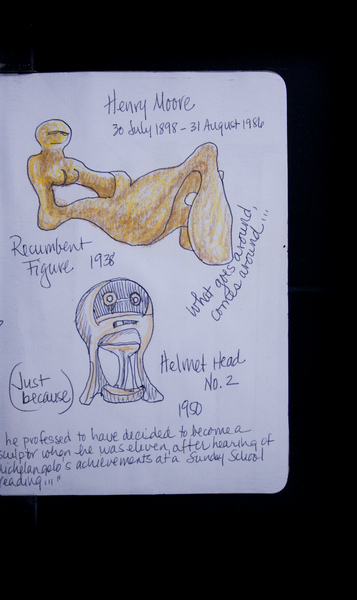 Henry Moore
30 July 1898 - 31 August 1986
Recumbent
Figure 1938
What goes around,
comes around...
Helmet Head
No. 2
1950
(Just
because)
he professed to have decided to become a
sculptor when he was eleven, after hearing of
Michelangelo's achievements at a Sunday School
reading..."